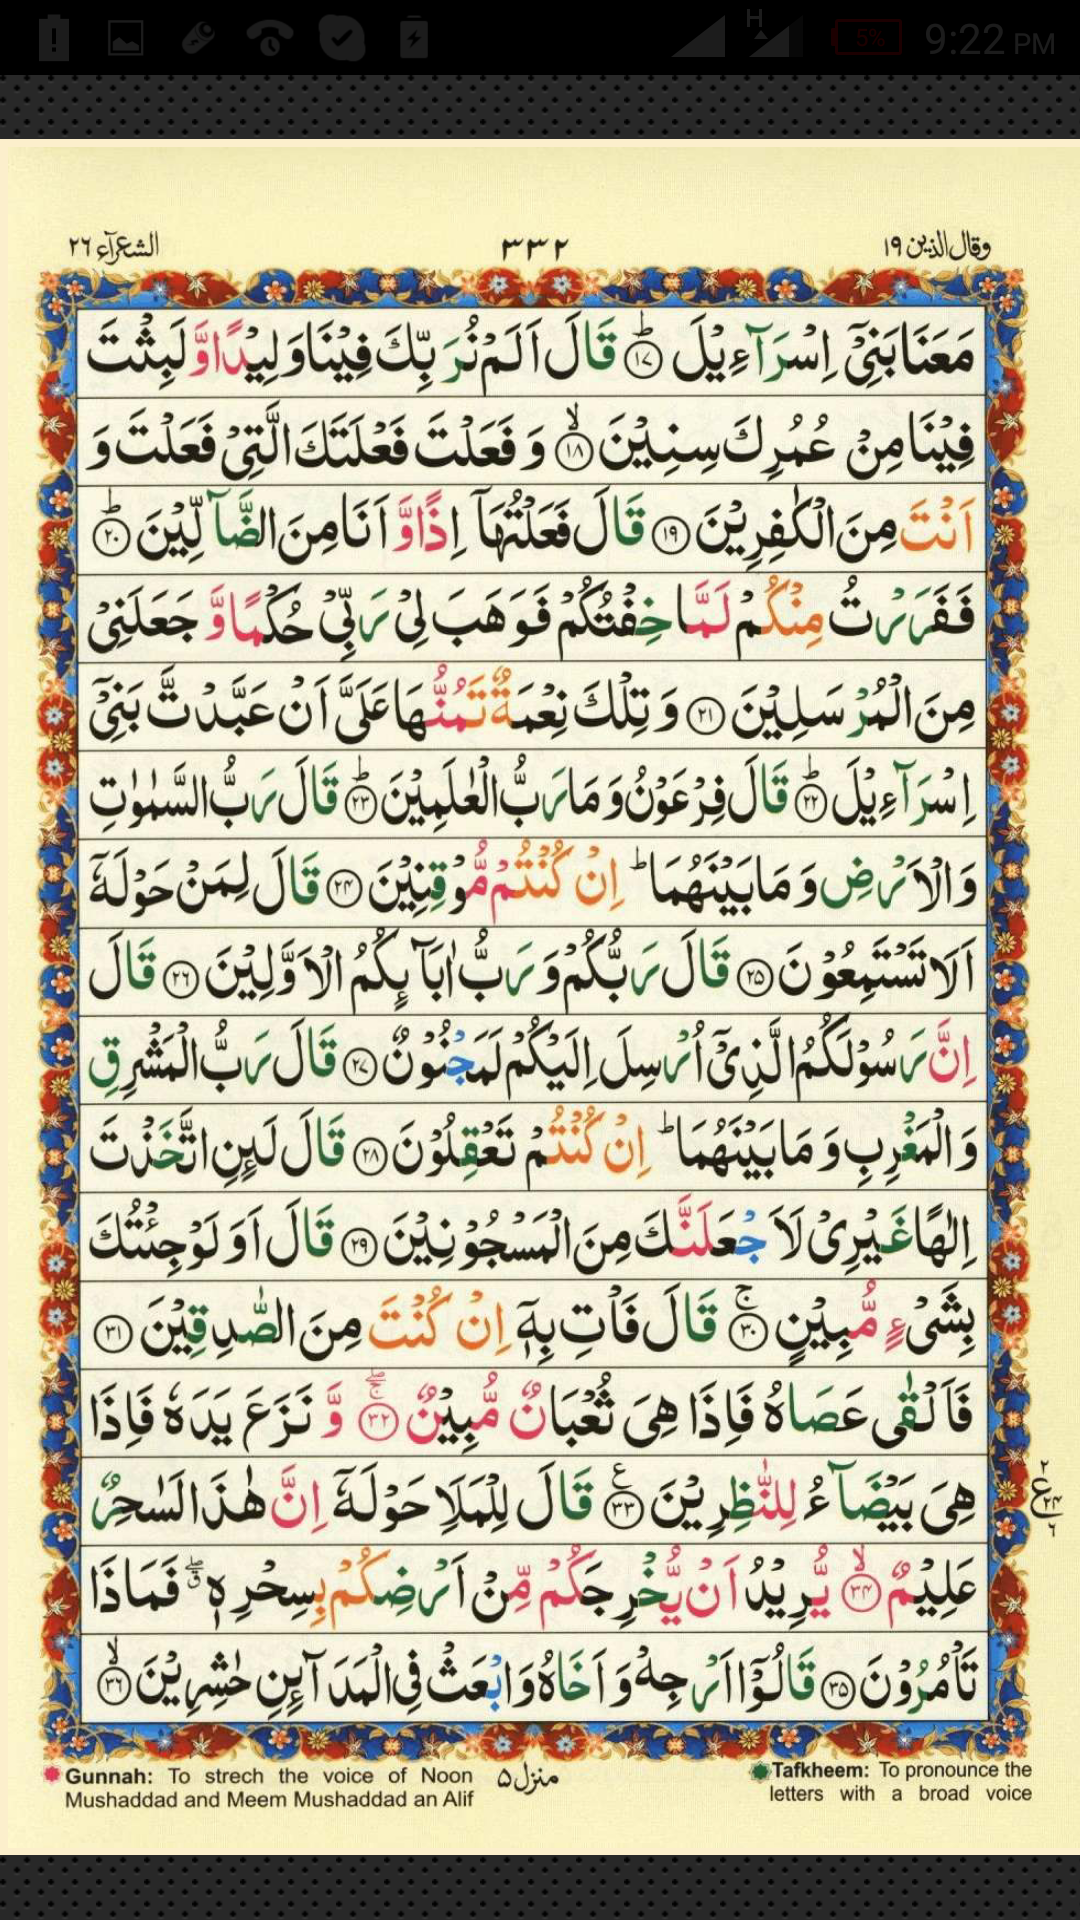 H
5% 9:22 PM
وقال الذین ۱۹ ۳۳۲ الشعرآء ۲۶
مَعَنَا بَنِیْۤ اِسْرَآءِیْلَ ؕ﴿۱۷﴾ قَالَ اَلَمْ نُرَبِّكَ فِیْنَا وَلِیْدًا وَّ لَبِثْتَ
فِیْنَا مِنْ عُمُرِكَ سِنِیْنَ ۙ﴿۱۸﴾ وَ فَعَلْتَ فَعْلَتَكَ الَّتِیْ فَعَلْتَ وَ
اَنْتَ مِنَ الْكٰفِرِیْنَ ﴿۱۹﴾ قَالَ فَعَلْتُهَاۤ اِذًا وَّ اَنَا مِنَ الضَّآلِّیْنَ ؕ﴿۲۰﴾
فَفَرَرْتُ مِنْكُمْ لَمَّا خِفْتُكُمْ فَوَهَبَ لِیْ رَبِّیْ حُكْمًا وَّ جَعَلَنِیْ
مِنَ الْمُرْسَلِیْنَ ﴿۲۱﴾ وَ تِلْكَ نِعْمَةٌ تَمُنُّهَا عَلَیَّ اَنْ عَبَّدْتَّ بَنِیْۤ
اِسْرَآءِیْلَ ؕ﴿۲۲﴾ قَالَ فِرْعَوْنُ وَ مَا رَبُّ الْعٰلَمِیْنَ ؕ﴿۲۳﴾ قَالَ رَبُّ السَّمٰوٰتِ
وَ الْاَرْضِ وَ مَا بَیْنَهُمَا ؕ اِنْ كُنْتُمْ مُّوْقِنِیْنَ ﴿۲۴﴾ قَالَ لِمَنْ حَوْلَهٗۤ
اَلَا تَسْتَمِعُوْنَ ﴿۲۵﴾ قَالَ رَبُّكُمْ وَ رَبُّ اٰبَآىِٕكُمُ الْاَوَّلِیْنَ ﴿۲۶﴾ قَالَ
اِنَّ رَسُوْلَكُمُ الَّذِیْۤ اُرْسِلَ اِلَیْكُمْ لَمَجْنُوْنٌ ﴿۲۷﴾ قَالَ رَبُّ الْمَشْرِقِ
وَ الْمَغْرِبِ وَ مَا بَیْنَهُمَا ؕ اِنْ كُنْتُمْ تَعْقِلُوْنَ ﴿۲۸﴾ قَالَ لَىِٕنِ اتَّخَذْتَ
اِلٰهًا غَیْرِیْ لَاَجْعَلَنَّكَ مِنَ الْمَسْجُوْنِیْنَ ﴿۲۹﴾ قَالَ اَوَ لَوْ جِئْتُكَ
بِشَیْءٍ مُّبِیْنٍ ۚ﴿۳۰﴾ قَالَ فَاْتِ بِهٖۤ اِنْ كُنْتَ مِنَ الصّٰدِقِیْنَ ﴿۳۱﴾
فَاَلْقٰی عَصَاهُ فَاِذَا هِیَ ثُعْبَانٌ مُّبِیْنٌ ۚۖ﴿۳۲﴾ وَّ نَزَعَ یَدَهٗ فَاِذَا
هِیَ بَیْضَآءُ لِلنّٰظِرِیْنَ ﴿۳۳﴾ ع قَالَ لِلْمَلَاِ حَوْلَهٗۤ اِنَّ هٰذَا لَسٰحِرٌ
۲ ع ۲۴ ۶
عَلِیْمٌ ۙ﴿۳۴﴾ یُّرِیْدُ اَنْ یُّخْرِجَكُمْ مِّنْ اَرْضِكُمْ بِسِحْرِهٖ ۖق فَمَا ذَا
تَاْمُرُوْنَ ﴿۳۵﴾ قَالُوْۤا اَرْجِهْ وَ اَخَاهُ وَ ابْعَثْ فِی الْمَدَآىِٕنِ حٰشِرِیْنَ ۙ﴿۳۶﴾
Gunnah: To strech the voice of Noon
Mushaddad and Meem Mushaddad an Alif
منزل ۵
Tafkheem: To pronounce the
letters with a broad voice